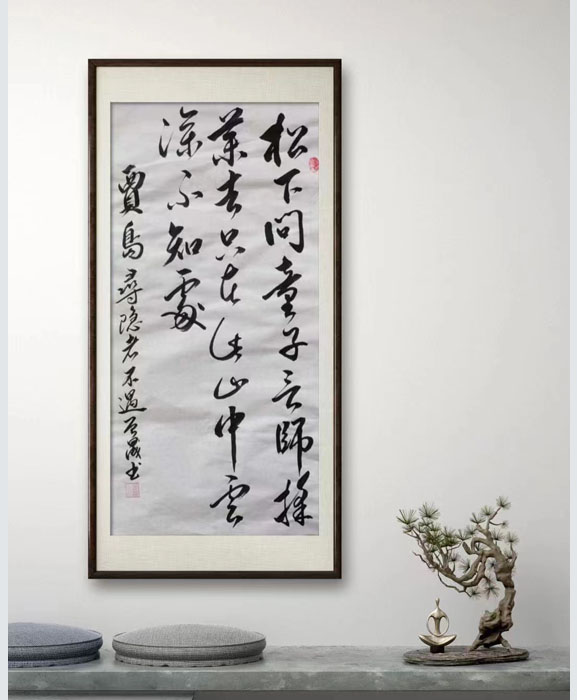 松下问童子言師採
葉去只在此山中雲
深不知處
賈島尋隐者不遇